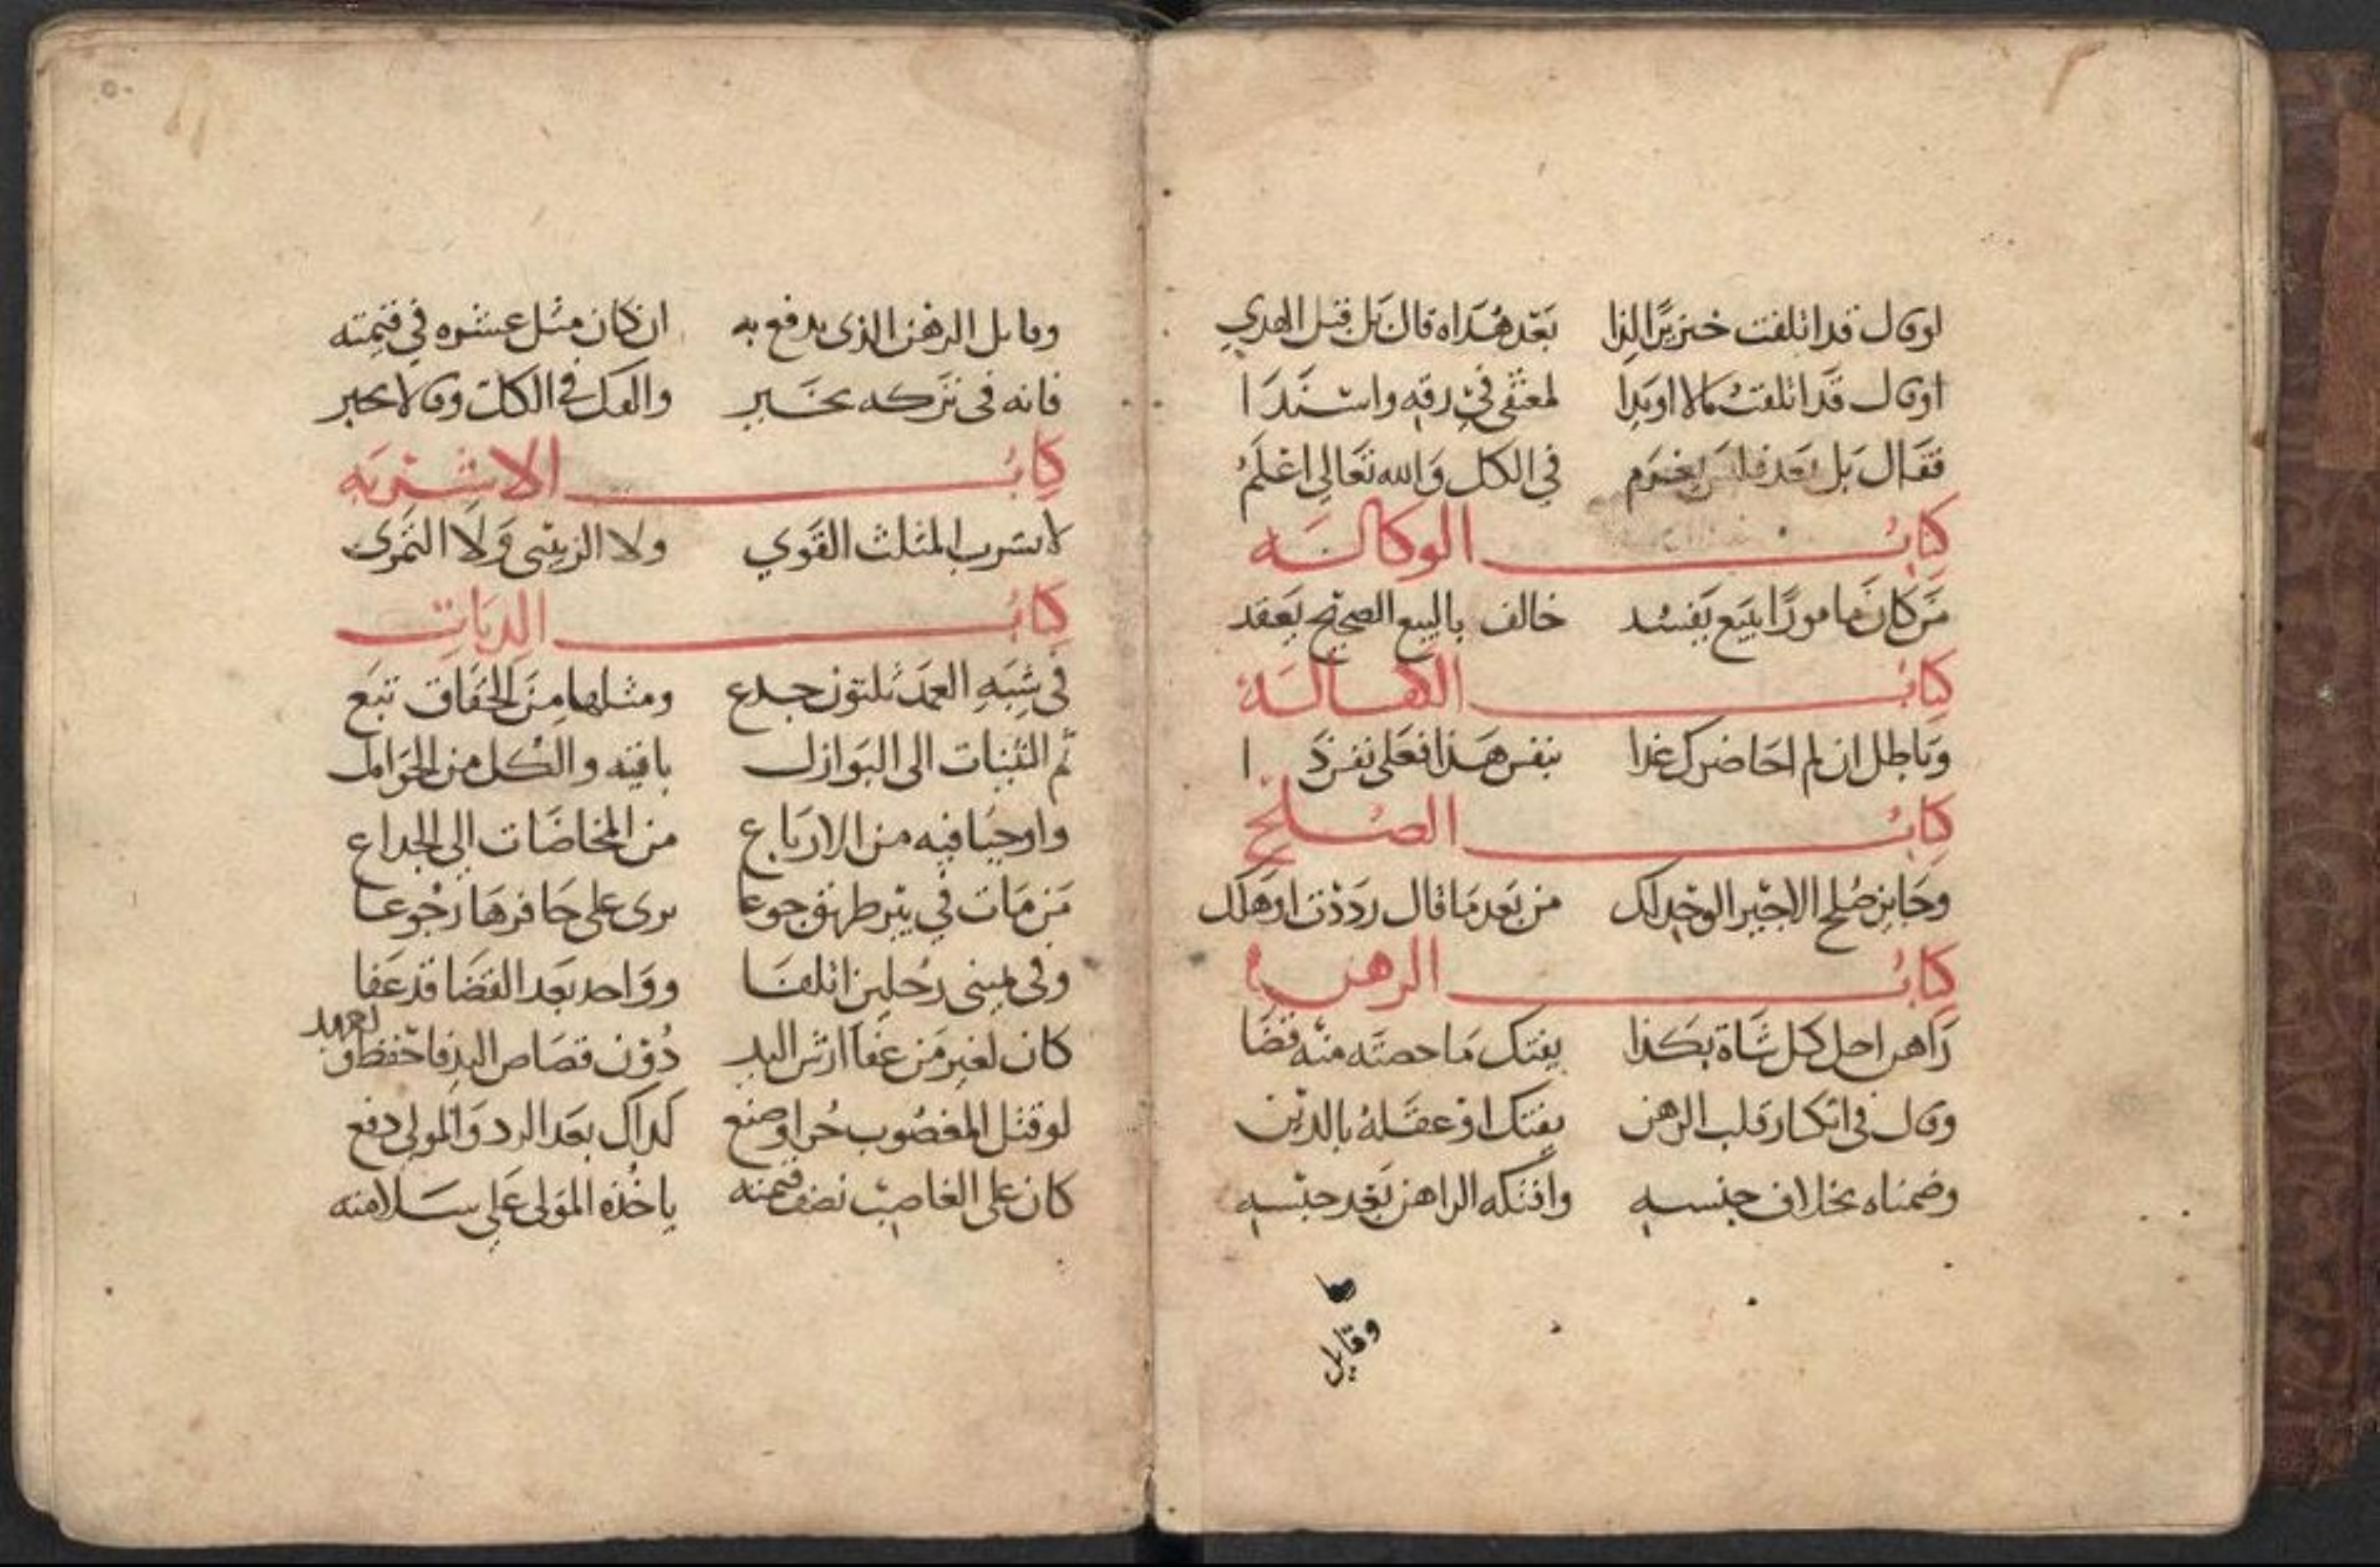 او قال قد اتلفت خنزيرًا لذا بعد هداه قال بل قبل الهدي
او قال قد اتلفت مالا او يدا لمعتقي في رقه واستندا
فقال بل بعد فليس يغرم في الكل والله تعالى اعلم
كتاب الوكالة
من كان مامورًا ببيع يفسد خالف بالبيع الصحيح يعقد
كتاب الكفالة
وباطل ان لم احاضرك غدا بنفس هذا فعلي نفس ذا
كتاب الصلح
وجايز صلح الاجير الوحد لك من بعد ما قال رددت او هلك
كتاب الرهن
راهن احل كل شاة بكذا يفتك ما حصته منه قضا
وقال في انكسار قلب الرهن يفتك او عقله بالدين
وضمناه بخلاف جنسه وافتكه الراهن بعد حبسه
وقابل
وقابل الرهن الذي يدفع به ان كان مثل عشره في قيمته
فانه في تركه يخير والفك في الكل وقالا يجبر
كتاب الاشربه
لا تشرب المثلث القوي ولا الزبيبي ولا التمري
كتاب الديات
في شبه العمد ثلثون جدع ومثلها من الحقاق تتبع
ثم الثنيات الى البوازل باقيه والكل من الحوامل
واوجبا فيه من الارباع من المخاضات الى الجداع
من مات في بير طريق جوعا يرى على حافرها رجوعا
وفي يميني رجلين اتلفا وواحد بعد القضا قد عفا
كان لغير من عفا ارش اليد دون قصاص اليد فاحفظ
لو قتل المغصوب حرا وصنع كداك بعد الرد والمولى دفع
كان على الغاصب نصف قيمته ياخذه المولى على سلامته